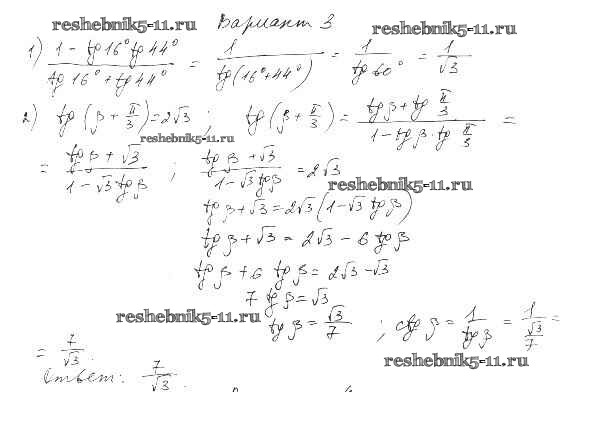 reshebnik5-11.ru Вариант 3 reshebnik5-11.ru
1) (1 - tg 16° tg 44°)/(tg 16° + tg 44°) = 1/(tg(16°+44°)) = 1/(tg 60°) = 1/√3
2) tg(β + π/3) = 2√3 ; tg(β + π/3) = (tg β + tg π/3)/(1 - tg β · tg π/3) =
reshebnik5-11.ru
= (tg β + √3)/(1 - √3 tg β) ; (tg β + √3)/(1 - √3 tg β) = 2√3
reshebnik5-11.ru
tg β + √3 = 2√3(1 - √3 tg β)
tg β + √3 = 2√3 - 6 tg β
tg β + 6 tg β = 2√3 - √3
7 tg β = √3
reshebnik5-11.ru
tg β = √3/7 ; ctg β = 1/(tg β) = 1/(√3/7) =
= 7/√3.
reshebnik5-11.ru
Ответ: 7/√3.